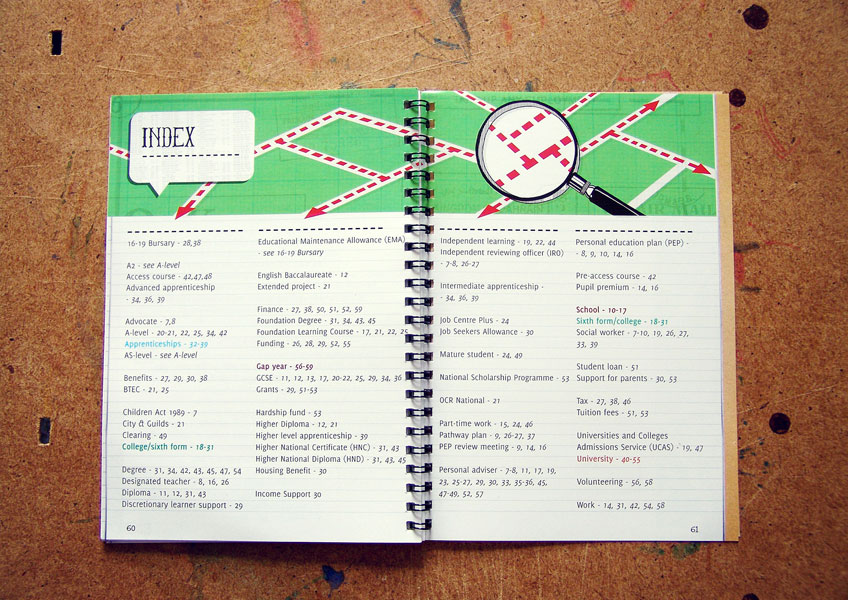 INDEX
16-19 Bursary - 28,38
A2 - see A-level
Access course - 42,47,48
Advanced apprenticeship
- 34, 36, 39
Advocate - 7,8
A-level - 20-21, 22, 25, 34, 42
Apprenticeships - 32-39
AS-level - see A-level
Benefits - 27, 29, 30, 38
BTEC - 21, 25
Children Act 1989 - 7
City & Guilds - 21
Clearing - 49
College/sixth form - 18-31
Degree - 31, 34, 42, 43, 45, 47, 54
Designated teacher - 8, 16, 26
Diploma - 11, 12, 31, 43
Discretionary learner support - 29
60
Educational Maintenance Allowance (EMA)
- see 16-19 Bursary
English Baccalaureate - 12
Extended project - 21
Finance - 27, 38, 50, 51, 52, 59
Foundation Degree - 31, 34, 43, 45
Foundation Learning Course - 17, 21, 22, 25
Funding - 26, 28, 29, 52, 55
Gap year - 56-59
GCSE - 11, 12, 13, 17, 20-22, 25, 29, 34, 36
Grants - 29, 51-53
Hardship fund - 53
Higher Diploma - 12, 21
Higher level apprenticeship - 39
Higher National Certificate (HNC) - 31, 43
Higher National Diploma (HND) - 31, 43, 45
Housing Benefit - 30
Income Support 30
Independent learning - 19, 22, 44
Independent reviewing officer (IRO)
- 7-8, 26-27
Intermediate apprenticeship -
- 34, 36, 39
Job Centre Plus - 24
Job Seekers Allowance - 30
Mature student - 24, 49
National Scholarship Programme - 53
OCR National - 21
Part-time work - 15, 24, 46
Pathway plan - 9, 26-27, 37
PEP review meeting - 9, 14, 16
Personal adviser - 7-8, 11, 17, 19,
23, 25-27, 29, 30, 33, 35-36, 45,
47-49, 52, 57
Personal education plan (PEP) -
- 8, 9, 10, 14, 16
Pre-access course - 42
Pupil premium - 14, 16
School - 10-17
Sixth form/college - 18-31
Social worker - 7-10, 19, 26, 27,
33, 39
Student loan - 51
Support for parents - 30, 53
Tax - 27, 38, 46
Tuition fees - 51, 53
Universities and Colleges
Admissions Service (UCAS) - 19, 47
University - 40-55
Volunteering - 56, 58
Work - 14, 31, 42, 54, 58
61